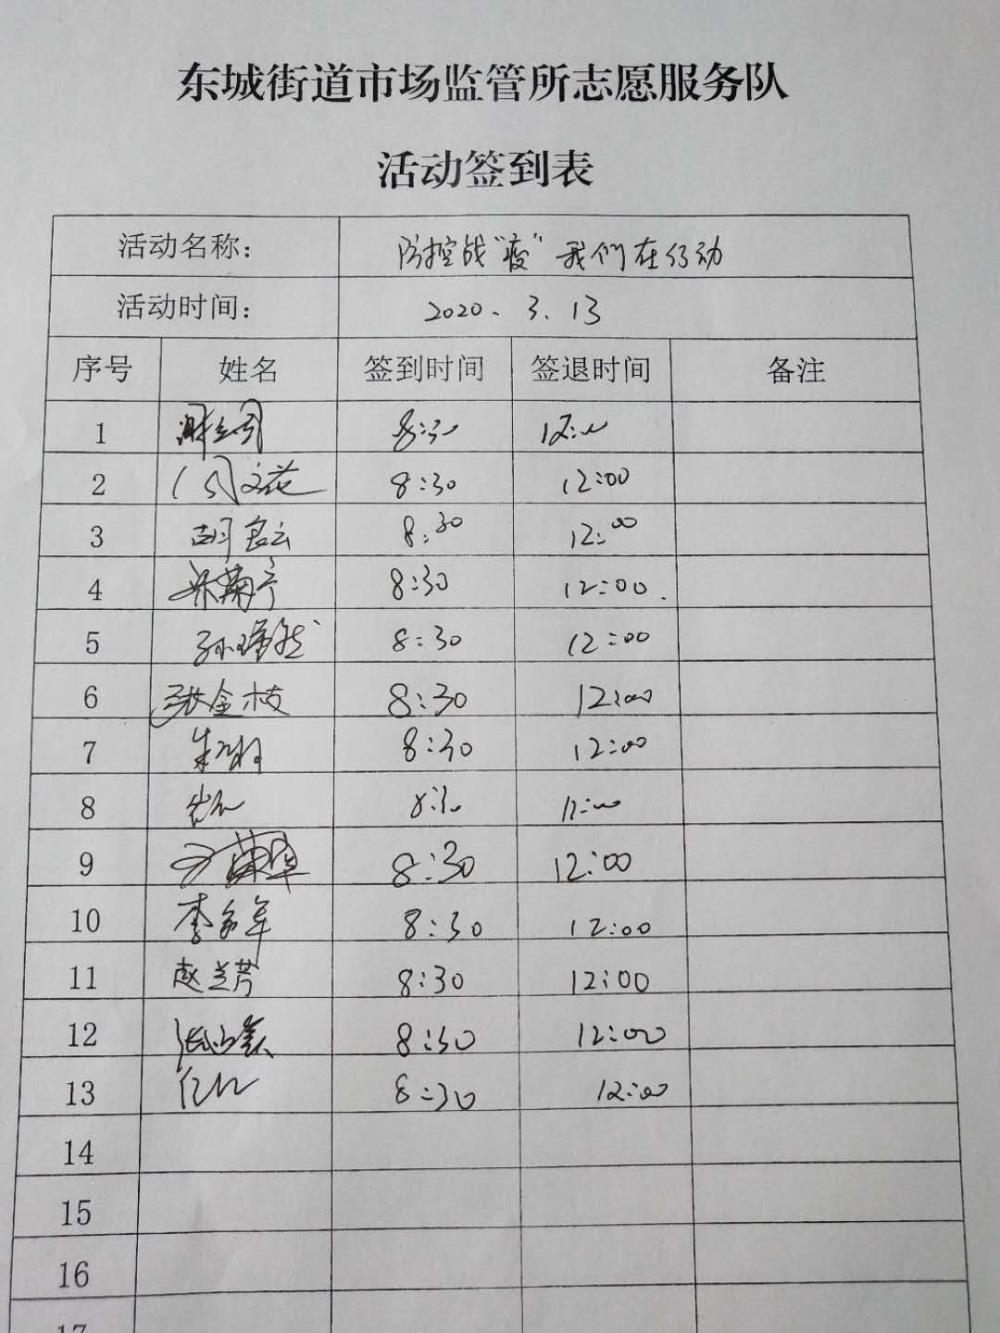 东城街道市场监管所志愿服务队
活动签到表
活动名称： 防控战“疫”我们在行动
活动时间： 2020、3、13
序号 姓名 签到时间 签退时间 备注
1 8:30 12:00
2 周文花 8:30 12:00
3 8:30 12:00
4 8:30 12:00.
5 8:30 12:00
6 张金枝 8:30 12:00
7 朱 8:30 12:00
8 8:30 12:00
9 8:30 12:00
10 李 8:30 12:00
11 赵兰芳 8:30 12:00
12 8:30 12:00
13 8:30 12:00
14
15
16
17